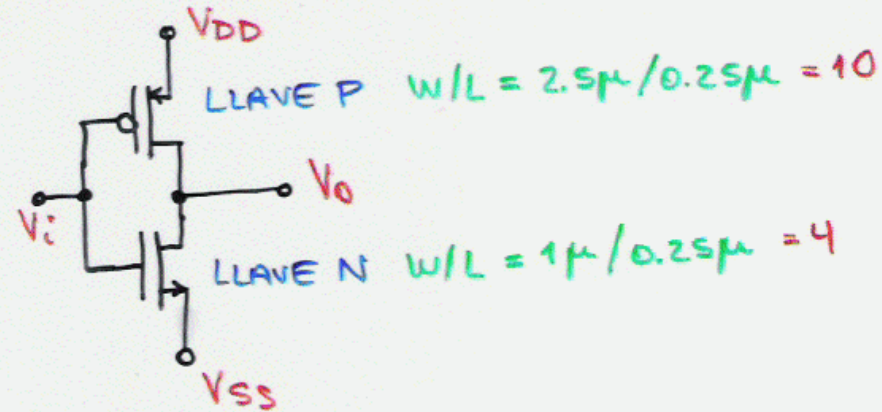 VDD
LLAVE P W/L = 2.5µ/0.25µ = 10
Vi
Vo
LLAVE N W/L = 1µ/0.25µ = 4
VSS